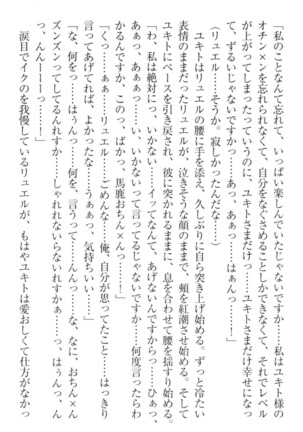 「私のことなんて忘れて、いっぱい楽しんでいたじゃないですか……私はユキト様の
オチン×ンを忘れられなくて、自分をなぐさめることしかできなくて、それでレベル
が上がってしまったっていうのに、ユキトさまだけっ……ユキトさまだけ幸せになっ
て、ずるいじゃないですかっ……あっ、あぁっ……はぁんっ……」
（リュエル……そうか。寂しかったんだな……）
　ユキトはリュエルの腰に手を添え、久しぶりに自ら突き上げ始める。ずっと冷たい
表情のままだったリュエルが、泣きそうな顔のままで、頬を紅潮させ始める。そして
ユキトにペースを引き戻され、彼に突かれるままに、息を合わせて腰を揺すり始める。
「わ、私は絶対にっ……いかないっ……イッてなんて、あげないんですからっ……ひぁっ、
あぁっ、あぁぁっ……い、いかないって言ってるじゃないですかっ……何度言ったらわ
かるんですか、このっ、ばかっ、馬鹿おち×んっ……んんっ……」
「くっ……ぁぁ……リュエル……ごめんな……俺、自分が思ってたこと……はっきり
言ってあげれば、よかったな……うぁぁっ、気持ちいい……」
「な、何をっ……はぅんっ……何を、言うって……んんっ……な、なに、おち×んが
ズンズンってしてるんれすか……しゃれれないらないれすかぁ……っ、はぅんっ、
っ、んんーーーっ……！」
　涙目でイクのを我慢しているリュエルが、もはやユキトは愛おしくて仕方がなかっ